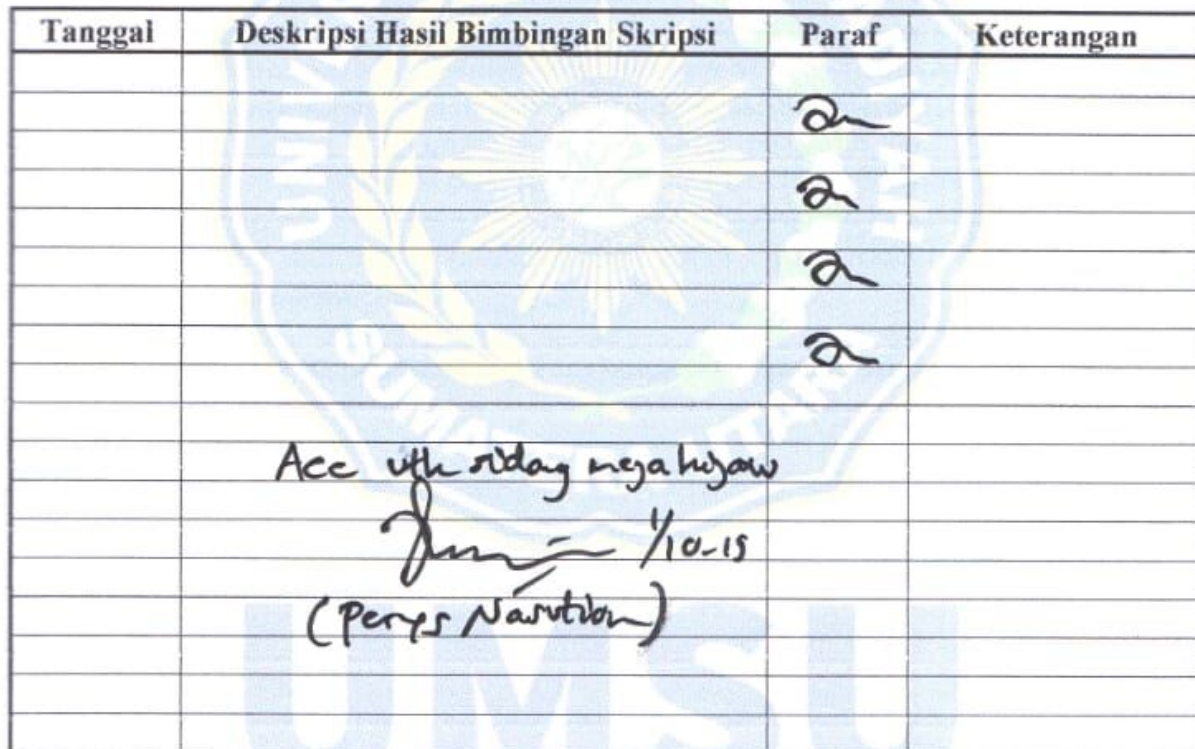 Tanggal Deskripsi Hasil Bimbingan Skripsi Paraf Keterangan
Acc utk sidang meja hijau
1/10-15
(Perys Nasution)
UMSU
SUMATERA UTARA